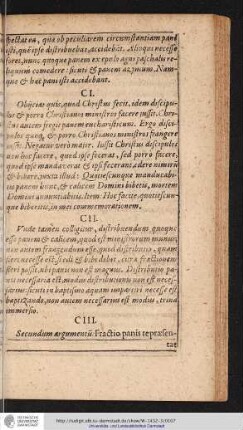 spectat ea, quæ ob peculiarem circumstantiam pani
isti, que ipse distribuebat, accidebat. Alioqui necesse
foret, nunc quoque panem ex epulo agni paschalis re-
liquum comedere: sicuti & panem azymum. Nam-
que & hæc pani isti accidebant.
CI.
Objiciat quis, quod Christus fecit, idem discipu-
los & porrò Christianos ministros facere iussit. Chri-
stus autem fregit panem eucharisticum. Ergo disci-
pulos quoque & porrò Christianos ministros frangere
iussit. Negatur verò major. Iussit Christus discipulos
suos hoc facere, quod ipse fecerat, sed porrò facere,
quod ipse mandaverat & ipsi fecerant, edere nimirum
& bibere, juxta illud: Quotiescunque manducabi-
tis panem hunc, & calicem Domini bibetis, mortem
Domini annunciabitis. Item: Hoc facite, quotiescun-
que biberitis, in mei commemorationem.
CII.
Unde tamen colligitur, distribuendum quoque
esse panem & calicem, quod sit ministrorum munus:
non autem frangendum esse, quod distribuere, ut
fieri necesse est, si edi & bibi debet, citra fractionem
fieri possit, ubi panis non est magnus. Distributio pa-
nis necessaria est, modus distribuendi non est neces-
sarius: sicuti in baptismo aquam impartiri necesse est
baptizando, non autem necessarius est modus, trina
immersio.
CIII.
Secundum argumentum: Fractio panis repræsen-
tat